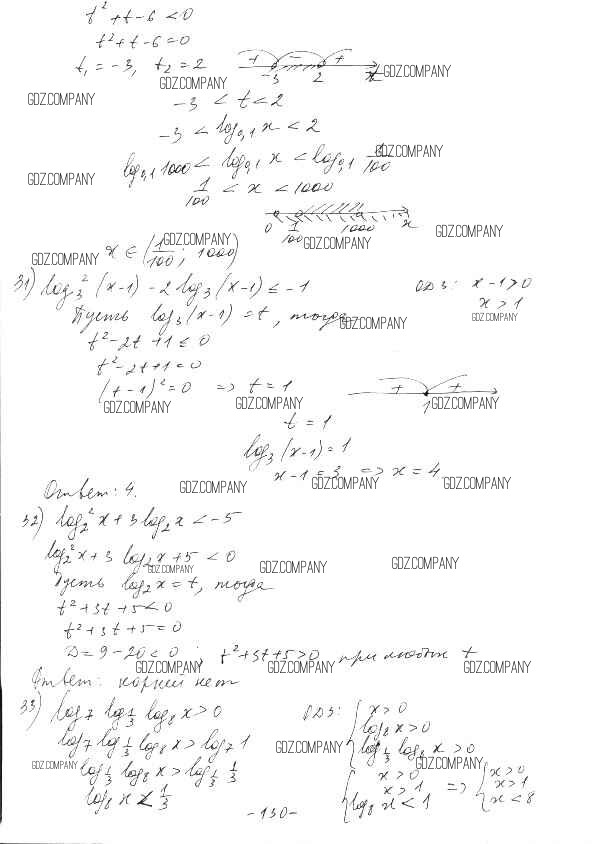 t² + t - 6 < 0
t² + t - 6 = 0
t₁ = -3, t₂ = 2
+ - +
-3 2 x
GDZ.COMPANY
GDZ.COMPANY
GDZ.COMPANY
-3 < t < 2
-3 < log₀,₁ x < 2
log₀,₁ 1000 < log₀,₁ x < log₀,₁ 1/100
GDZ.COMPANY
GDZ.COMPANY
1/100 < x < 1000
0 1/100 1000 x
GDZ.COMPANY
GDZ.COMPANY
GDZ.COMPANY
GDZ.COMPANY
x ∈ (1/100; 1000)
31) log₃² (x-1) - 2 log₃ (x-1) ≤ -1 ОДЗ: x-1>0
x > 1
GDZ.COMPANY
Пусть log₃(x-1) = t, тогда
GDZ.COMPANY
t² - 2t + 1 ≤ 0
t² - 2t + 1 = 0
(t-1)² = 0 => t = 1
+ +
1
GDZ.COMPANY
GDZ.COMPANY
GDZ.COMPANY
t = 1
log₃ (x-1) = 1
x - 1 = 3 => x = 4
Ответ: 4.
GDZ.COMPANY
GDZ.COMPANY
GDZ.COMPANY
32) log₂² x + 3 log₂ x < -5
log₂² x + 3 log₂ x + 5 < 0
GDZ.COMPANY
GDZ.COMPANY
GDZ.COMPANY
Пусть log₂ x = t, тогда
t² + 3t + 5 < 0
t² + 3t + 5 = 0
D = 9 - 20 < 0; t² + 3t + 5 > 0 при любых t
GDZ.COMPANY
GDZ.COMPANY
GDZ.COMPANY
Ответ: корней нет
33) log₇ log₁/₃ log₈ x > 0 ОДЗ: { x > 0
log₈ x > 0
log₁/₃ log₈ x > 0
log₇ log₁/₃ log₈ x > log₇ 1
GDZ.COMPANY
GDZ.COMPANY
GDZ.COMPANY
log₁/₃ log₈ x > log₁/₃ 1/3
{ x > 0 => { x > 0
x > 1 x > 1
log₈ x < 1 x < 8
log₈ x < 1/3
-130-